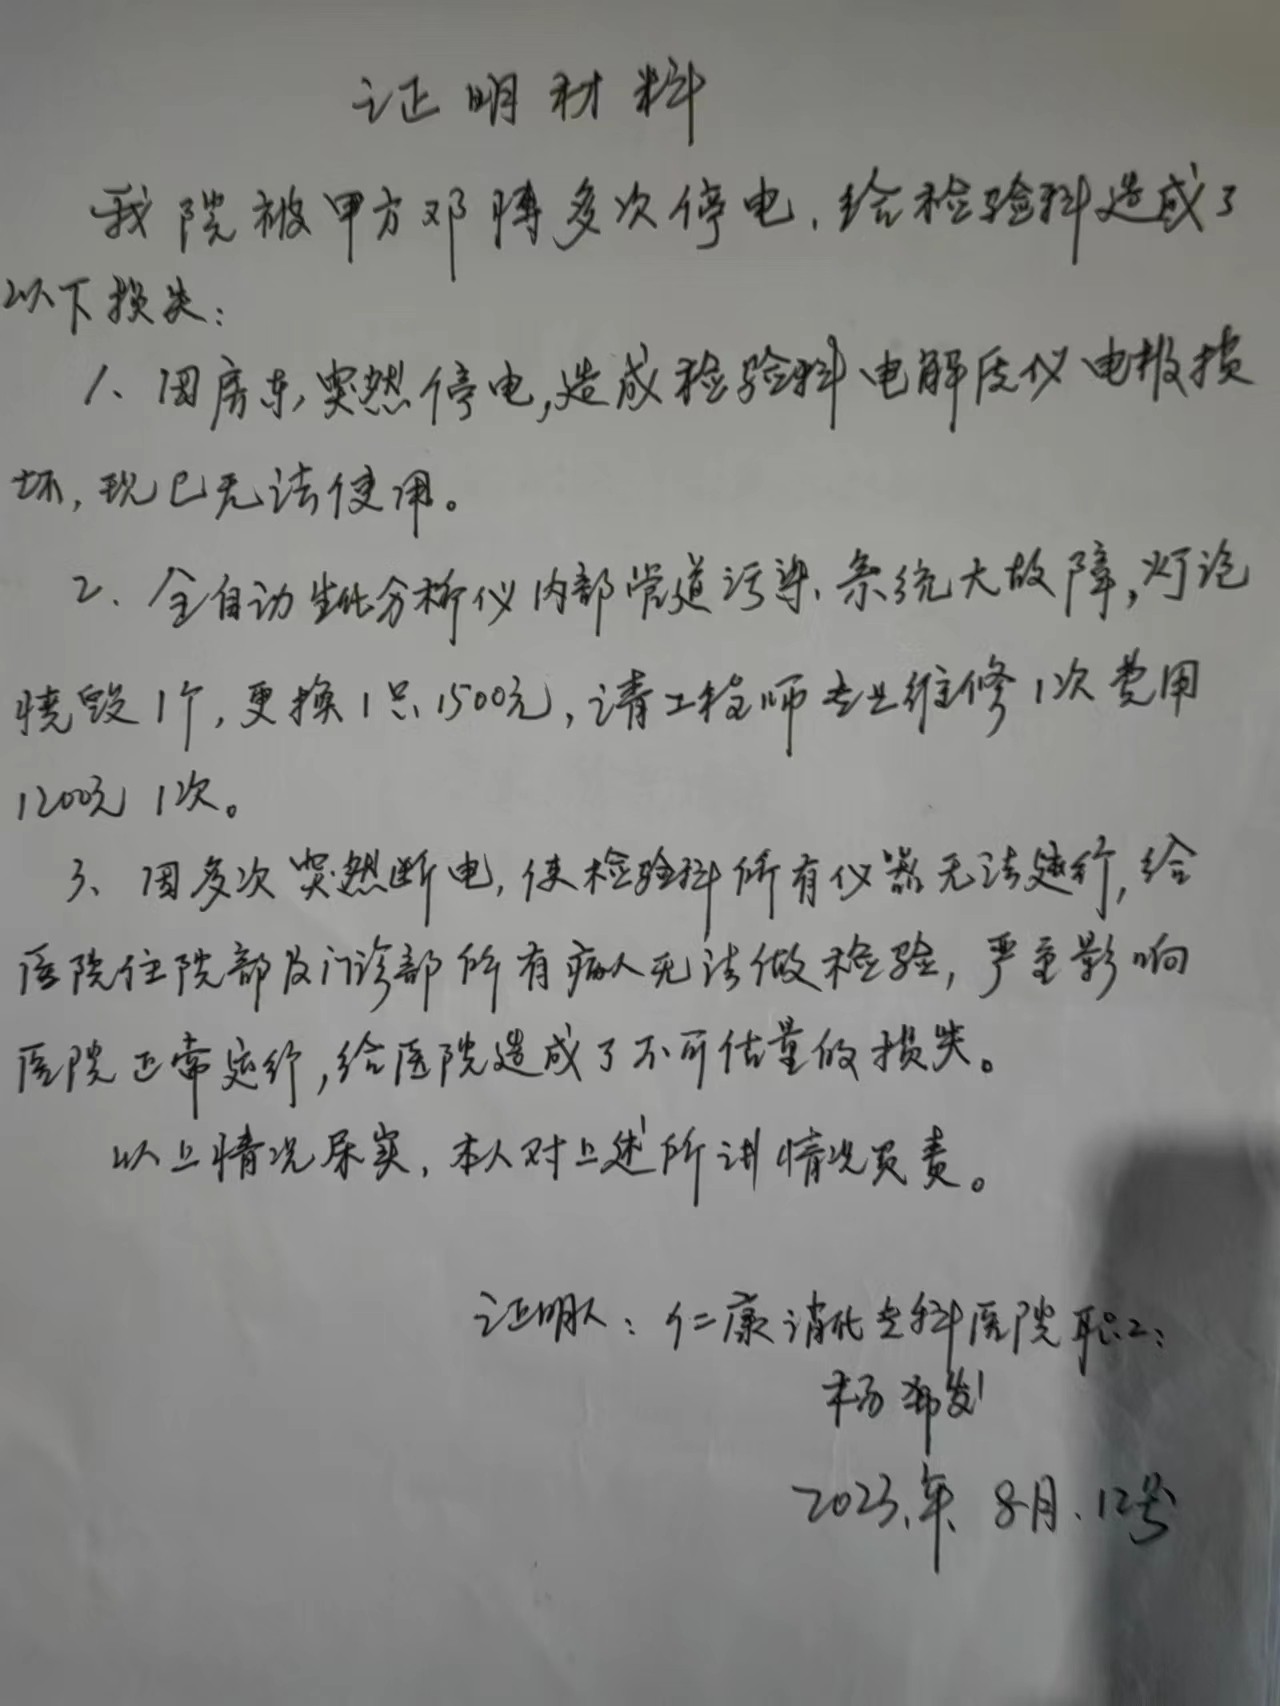 证明材料
我院被甲方邓博多次停电，给检验科造成了
以下损失：
1、因房东突然停电，造成检验科电解质仪电极损
坏，现已无法使用。
2、全自动生化分析仪内部管道污染、系统大故障，灯泡
烧毁1个，更换1只1500元，请工程师专业维修1次费用
1200元1次。
3、因多次突然断电，使检验科所有仪器无法运行，给
医院住院部及门诊部所有病人无法做检验，严重影响
医院正常运行，给医院造成了不可估量的损失。
以上情况属实，本人对上述所讲情况负责。
证明人：仁康消化专科医院职工：
杨希发
2023年8月12号